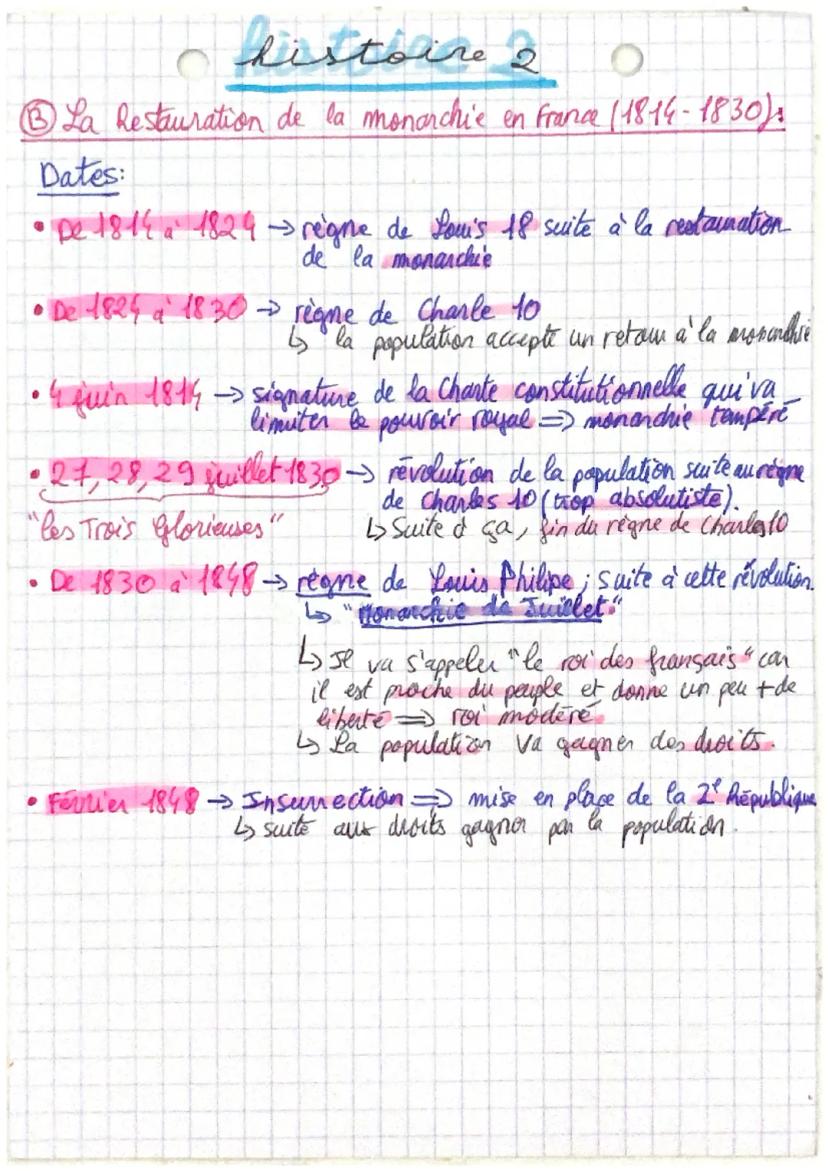 histoire 2
B La Restauration de la monarchie en France (1814-1830):
Dates:
• De 1814 à 1824 → règne de Louis 18 suite à la restauration
de la monarchie
• De 1824 à 1830 → règne de Charle 10
↳ la population accepte un retour à la monarchie
• 4 juin 1814 → signature de la Charte constitutionnelle qui va
limiter le pouvoir royal => monarchie tempéré
• 27, 28, 29 juillet 1830 → révolution de la population suite au règne
de Charles 10 (trop absolutiste).
"les Trois Glorieuses" ↳ Suite à ça, fin du règne de Charles 10
• De 1830 à 1848 → règne de Louis Philipe ; suite à cette révolution.
↳ "Monarchie de Juillet."
↳ Il va s'appeler "le roi des français" car
il est proche du peuple et donne un peu + de
liberté => roi modéré.
↳ La population va gagner des droits.
• Février 1848 → Insurrection => mise en place de la 2e République
↳ suite aux droits gagner par la population.